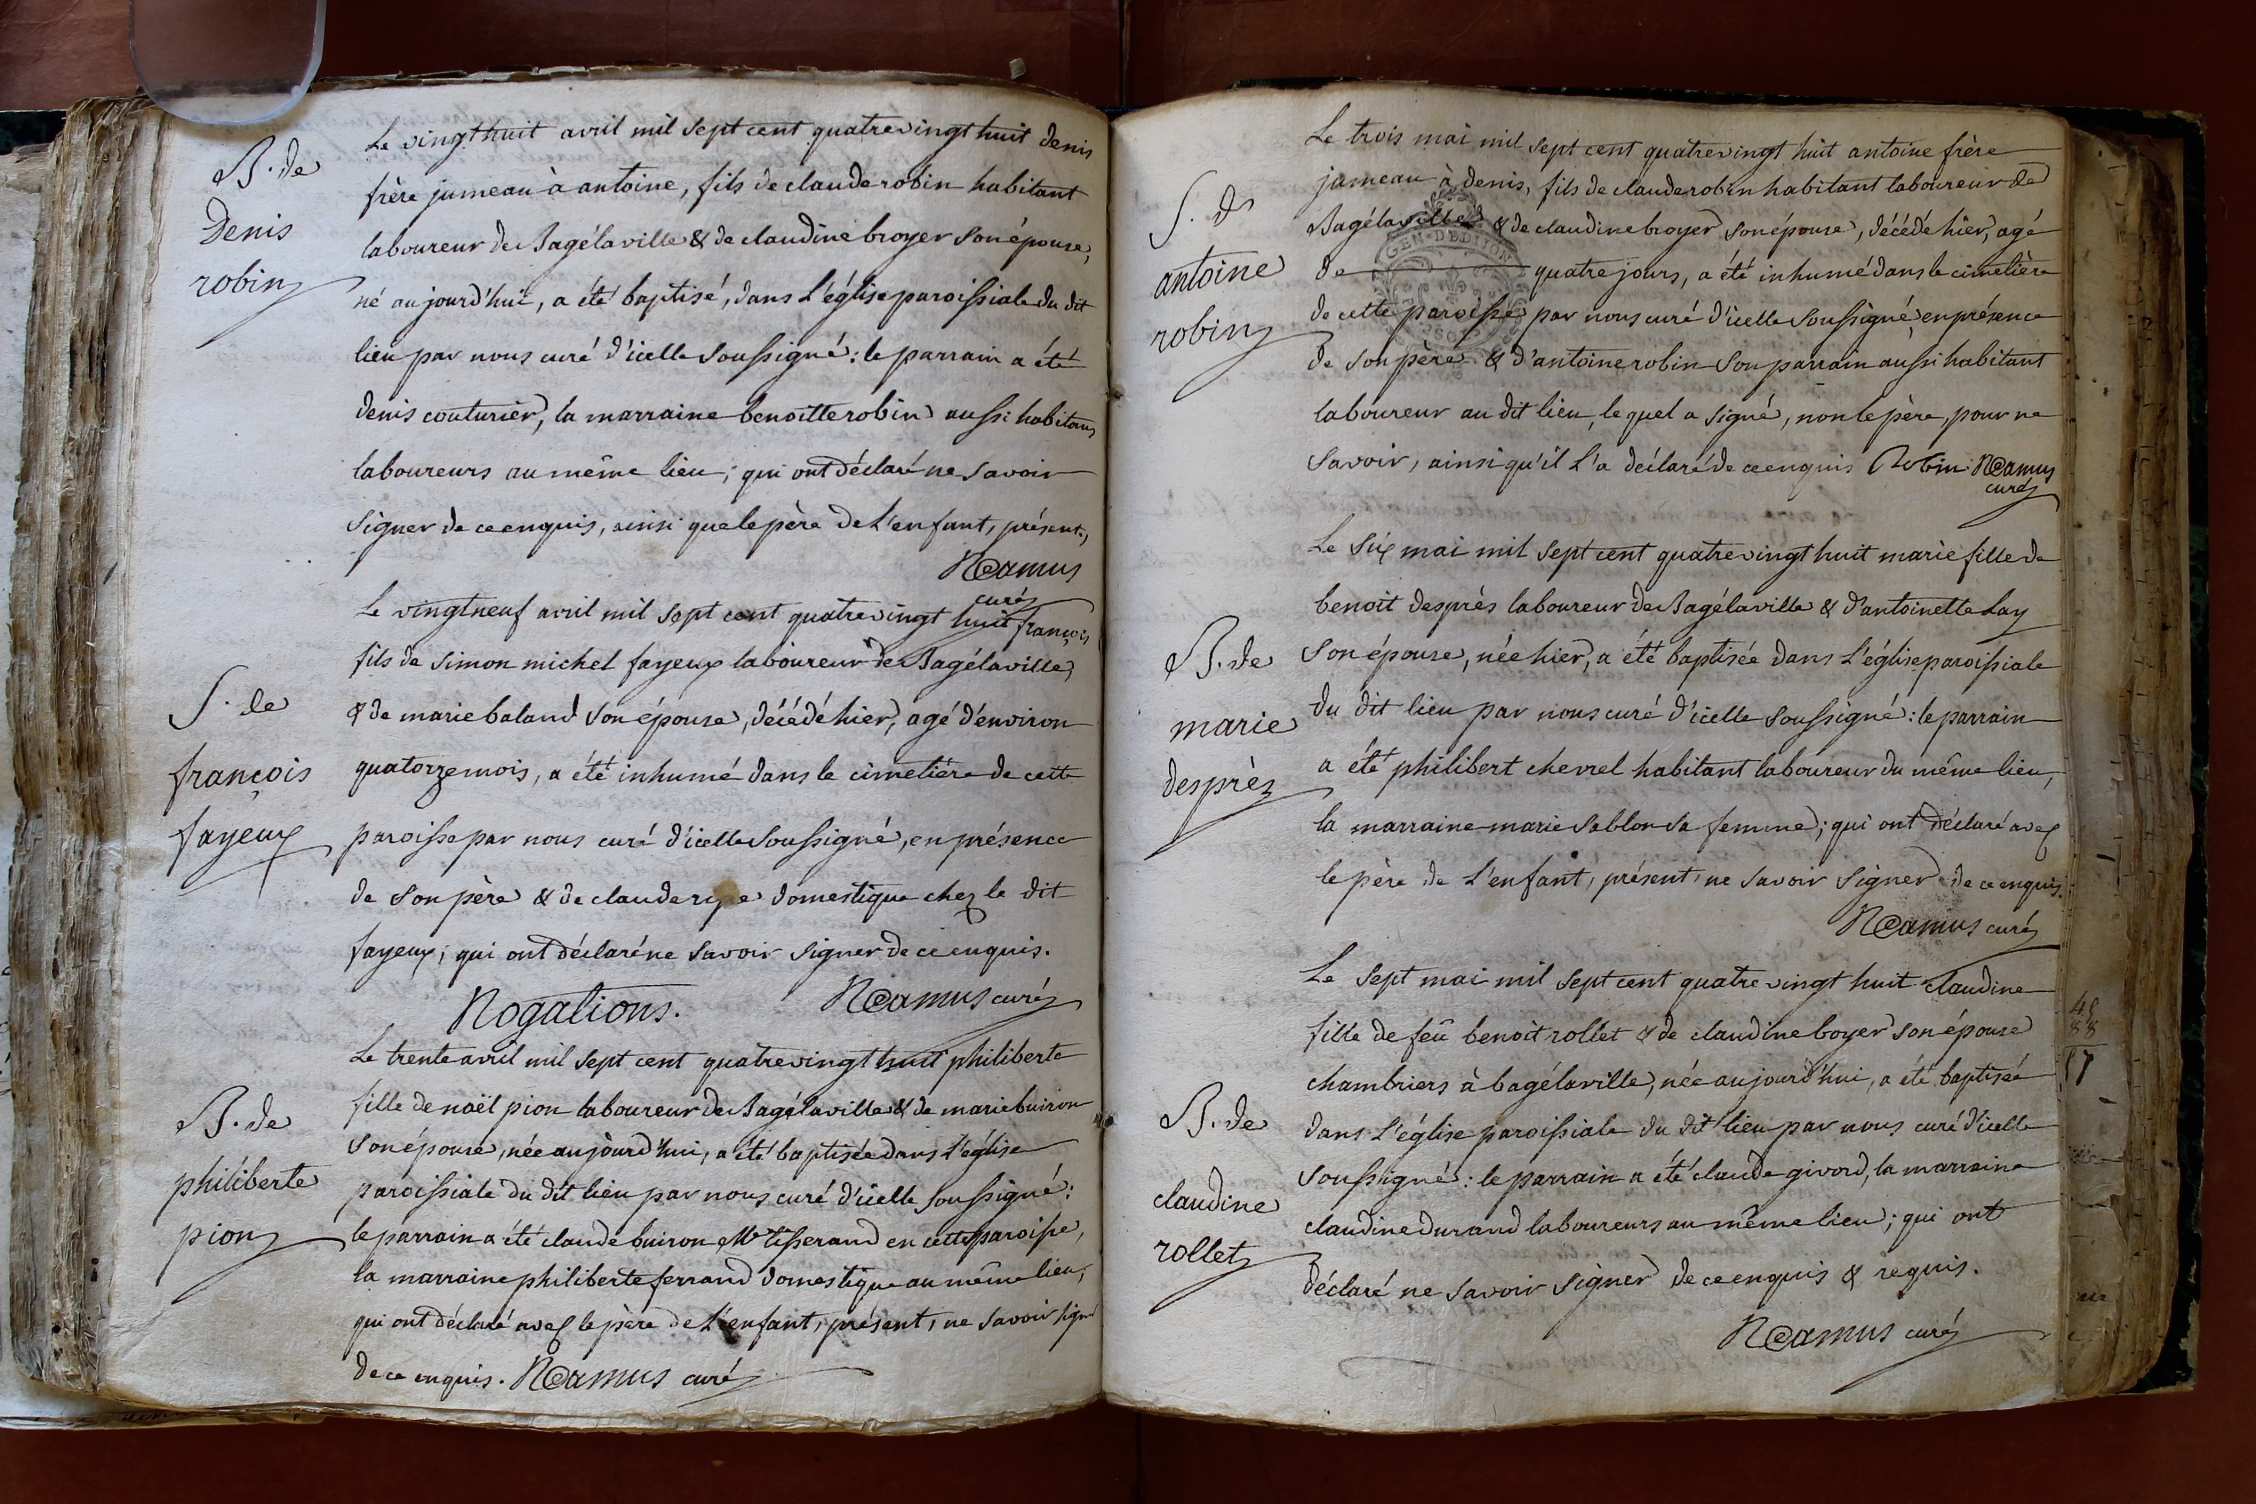 B. de
Denis
robin
Le vingt huit avril mil sept cent quatre vingt huit denis
frère jumeau à antoine, fils de claude robin habitant
laboureur de Bagélaville & de claudine broyer son épouse,
né aujourd'hui, a été baptisé, dans L'église paroissiale du dit
lieu par nous curé d'icelle soussigné : le parrain a été
denis couturier, la marraine benoitte robin aussi habitans
laboureurs au même lieu ; qui ont déclaré ne savoir
signer de ce enquis, ainsi que le père de L'enfant, présent.
Camus
curé
S. de
françois
fayeux
Le vingt neuf avril mil sept cent quatre vingt huit françois
fils de simon michel fayeux laboureur de Bagélaville,
& de marie baland son épouse, décédé hier, agé d'environ
quatorze mois, a été inhumé dans le cimetière de cette
paroisse par nous curé d'icelle soussigné, en présence
de son père & de claude domestique chez le dit
fayeux ; qui ont déclaré ne savoir signer de ce enquis.
Rogations. Camus curé
B. de
philiberte
pion
Le trente avril mil sept cent quatre vingt huit philiberte
fille de naël pion laboureur de Bagélaville & de marie buiron
son épouse, née aujourd'hui, a été baptisée dans L'église
paroissiale du dit lieu par nous curé d'icelle soussigné :
le parrain a été claude buiron Me tisserand en cette paroisse,
la marraine philiberte ferrand domestique au même lieu,
qui ont déclaré avec le père de L'enfant, présent, ne savoir signer
de ce enquis. Camus curé
S. de
antoine
robin
Le trois mai mil sept cent quatre vingt huit antoine frère
jumeau à denis, fils de claude robin habitant laboureur de
Bagélaville & de claudine broyer son épouse, décédé hier, agé
de quatre jours, a été inhumé dans le cimetière
de cette paroisse par nous curé d'icelle soussigné, en présence
de son père & d'antoine robin son parrain aussi habitant
laboureur au dit lieu, le quel a signé, non le père, pour ne
savoir, ainsi qu'il L'a déclaré de ce enquis Robin Camus
curé
GEN. DE DIJON
B. de
marie
desprès
Le six mai mil sept cent quatre vingt huit marie fille de
benoit desprès laboureur de Bagélaville & d'antoinette Lay
son épouse, née hier, a été baptisée dans L'église paroissiale
du dit lieu par nous curé d'icelle soussigné : le parrain
a été philibert chevrel habitant laboureur du même lieu,
la marraine marie sablon sa femme ; qui ont déclaré avec
le père de L'enfant, présent, ne savoir signer de ce enquis.
Camus curé
B. de
claudine
rollet
Le sept mai mil sept cent quatre vingt huit claudine
fille de feû benoit rollet & de claudine boyer son épouse
chambriers à bagélaville, née aujourd'hui, a été baptisée
dans L'église paroissiale du dit lieu par nous curé d'icelle
soussigné : le parrain a été claude givord, la marraine
claudine durand laboureurs au même lieu ; qui ont
déclaré ne savoir signer de ce enquis & requis.
Camus curé